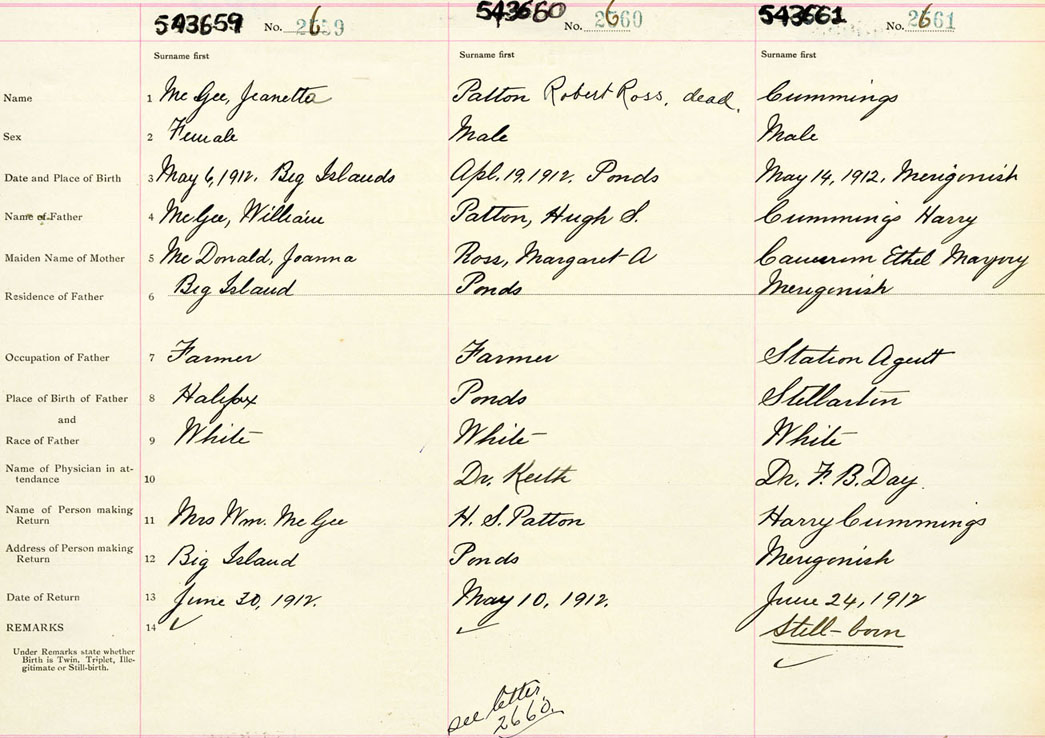 543659 No. 2659 543660 No. 2660 543661 No. 2661
Surname first Surname first Surname first
Name 1 McGee, Jeanetta Patton Robert Ross, dead. Cummings
Sex 2 Female Male Male
Date and Place of Birth 3 May 6, 1912. Big Islands Apl. 19, 1912. Ponds May 14, 1912. Merigonish
Name of Father 4 McGee, William Patton, Hugh S. Cummings Harry
Maiden Name of Mother 5 McDonald, Joanna Ross, Margaret A Ethel Marjory
Residence of Father 6 Big Island Ponds Merigonish
Occupation of Father 7 Farmer Farmer Station Agent
Place of Birth of Father 8 Halifax Ponds Stellarton
and
Race of Father 9 White White White
Name of Physician in at-
tendance 10 Dr. Keith Dr. F. B. Day.
Name of Person making
Return 11 Mrs Wm. McGee H. S. Patton Harry Cummings
Address of Person making
Return 12 Big Island Ponds Merigonish
Date of Return 13 June 30, 1912. May 10, 1912. June 24, 1912
REMARKS 14 ✓ ✓ Still-born
✓
Under Remarks state whether
Birth is Twin, Triplet, Ille-
gitimate or Still-birth.
see letter
2660.